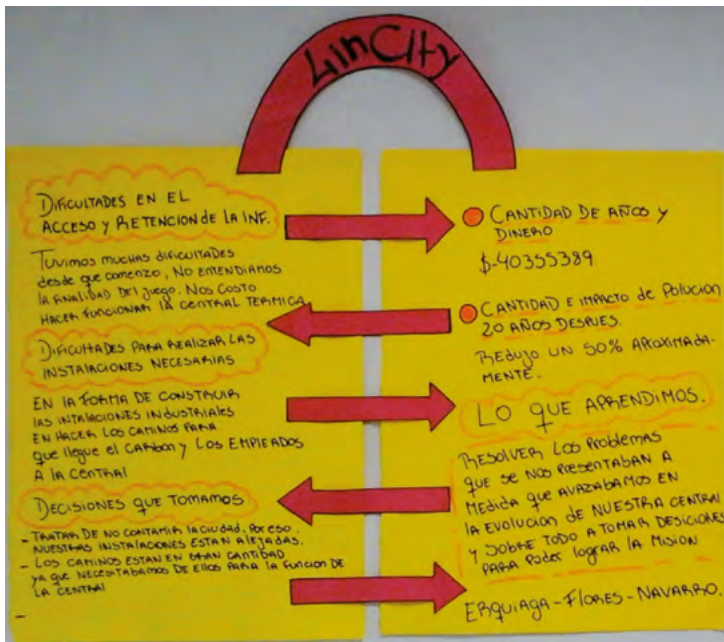 LinCity
DIFICULTADES EN EL
ACCESO Y RETENCION de LA INF.
TUVIMOS MUCHAS DIFICULTADES
desde que comenzo, NO ENTENDIAMOS
LA FINALIDAD DEL JUEGO. NOS COSTO
HACER FUNCIONAR LA CENTRAL TERMICA
DIFICULTADES PARA REALIZAR LAS
INSTALACIONES NECESARIAS
EN LA FORMA DE CONSTRUIR
LAS INTALACIONES INDUSTRIALES
EN HACER LOS CAMINOS PARA
que llegue el CARBON y LOS EMPLEADOS
A LA CENTRAL
DECISIONES QUE TOMAMOS
- TRATAR DE NO CONTAMIR LA CIUDAD. POR ESO
NUESTRAS INSTALACIONES ESTAN ALEJADAS.
- LOS CAMINOS ESTAN EN GRAN CANTIDAD
YA QUE NECESITABAMOS DE ELLOS PARA LA FUNCION DE
LA CENTRAL
-
CANTIDAD DE AÑOS Y
DINERO
$-40355389
CANTIDAD E IMPACTO de Polucion
20 AÑOS DESPUES.
REDUJO UN 50% APROXIMADA-
MENTE.
LO QUE APRENDIMOS.
RESOLVER LOS PROBLEMAS
QUE SE NOS PRESENTABAN A
MEDIDA QUE AVAZABAMOS EN
LA EVOLUCION DE NUESTRA CENTRAL
Y SOBRE TODO A TOMAR DESICIONES
PARA PODER LOGRAR LA MISION
ERQUIAGA - FLORES - NAVARRO.